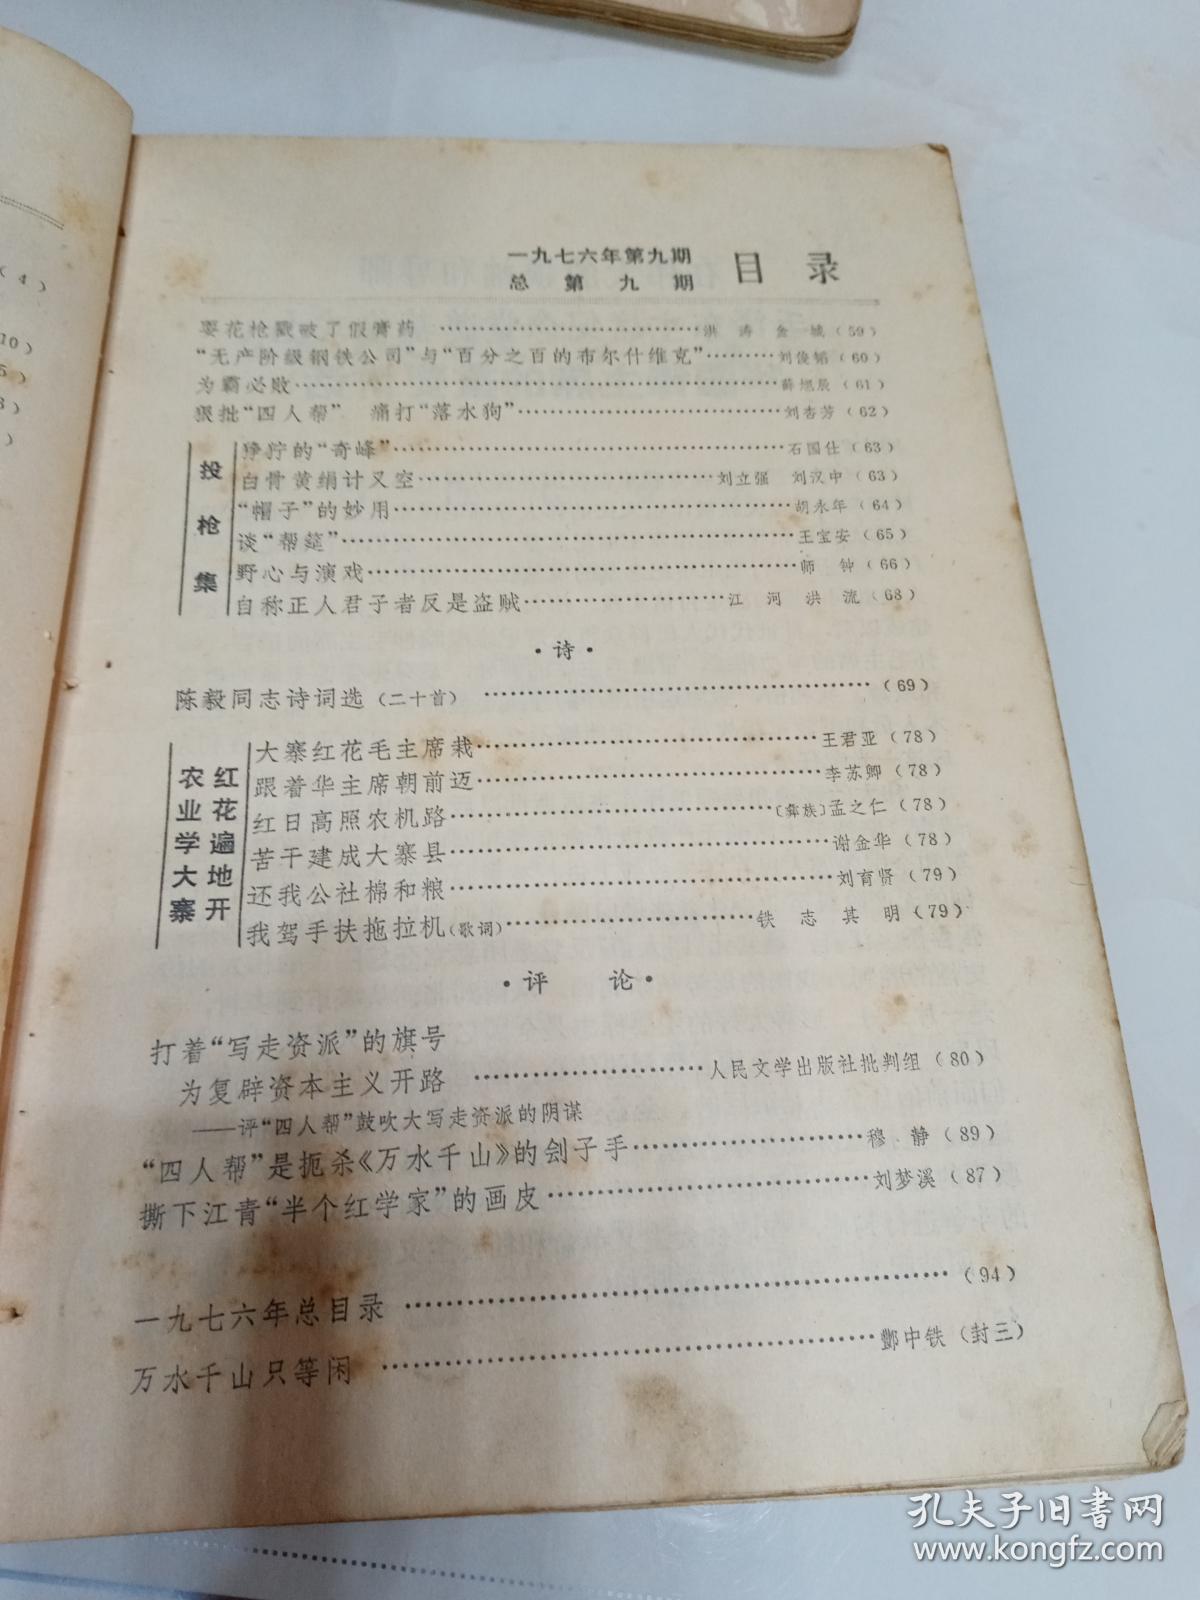 一九七六年第九期
总第九期
目录
耍花枪戳破了假膏药……洪涛 金城(59)
“无产阶级钢铁公司”与“百分之百的布尔什维克”……刘俊韬(60)
为霸必败……薛 辰(61)
狠批“四人帮” 痛打“落水狗”……刘杏芳(62)
投枪集
狰狞的“奇峰”……石国仕(63)
白骨黄绢计又空……刘立强 刘汉中(63)
“帽子”的妙用……胡永年(64)
谈“帮筵”……王宝安(65)
野心与演戏……师钟(66)
自称正人君子者反是盗贼……江河洪流(68)
·诗·
陈毅同志诗词选(二十首)……(69)
农业学大寨
红花遍地开
大寨红花毛主席栽……王君亚(78)
跟着华主席朝前迈……李苏卿(78)
红日高照农机路……〔彝族〕孟之仁(78)
苦干建成大寨县……谢金华(78)
还我公社棉和粮……刘育贤(79)
我驾手扶拖拉机(歌词)……铁志其明(79)
·评论·
打着“写走资派”的旗号
为复辟资本主义开路……人民文学出版社批判组(80)
——评“四人帮”鼓吹大写走资派的阴谋
“四人帮”是扼杀《万水千山》的刽子手……穆静(89)
撕下江青“半个红学家”的画皮……刘梦溪(87)
一九七六年总目录……(94)
万水千山只等闲……酆中铁(封三)
(4)
10)
5)
3)
)
孔夫子旧书网
www.kongfz.com